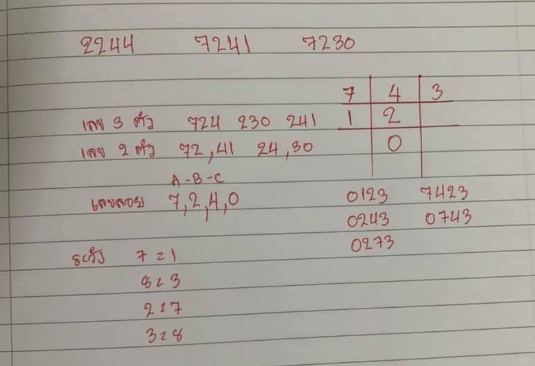 2244 7241 7230
7 4 3
เลข 3 ตัว 724 230 241 1 2
เลข 2 ตัว 72,41 24,30 0
A-B-C
เลขลอย 7,2,4,0 0123 7423
0243 0743
ระวัง 7=1 0273
8=3
2=7
3=8